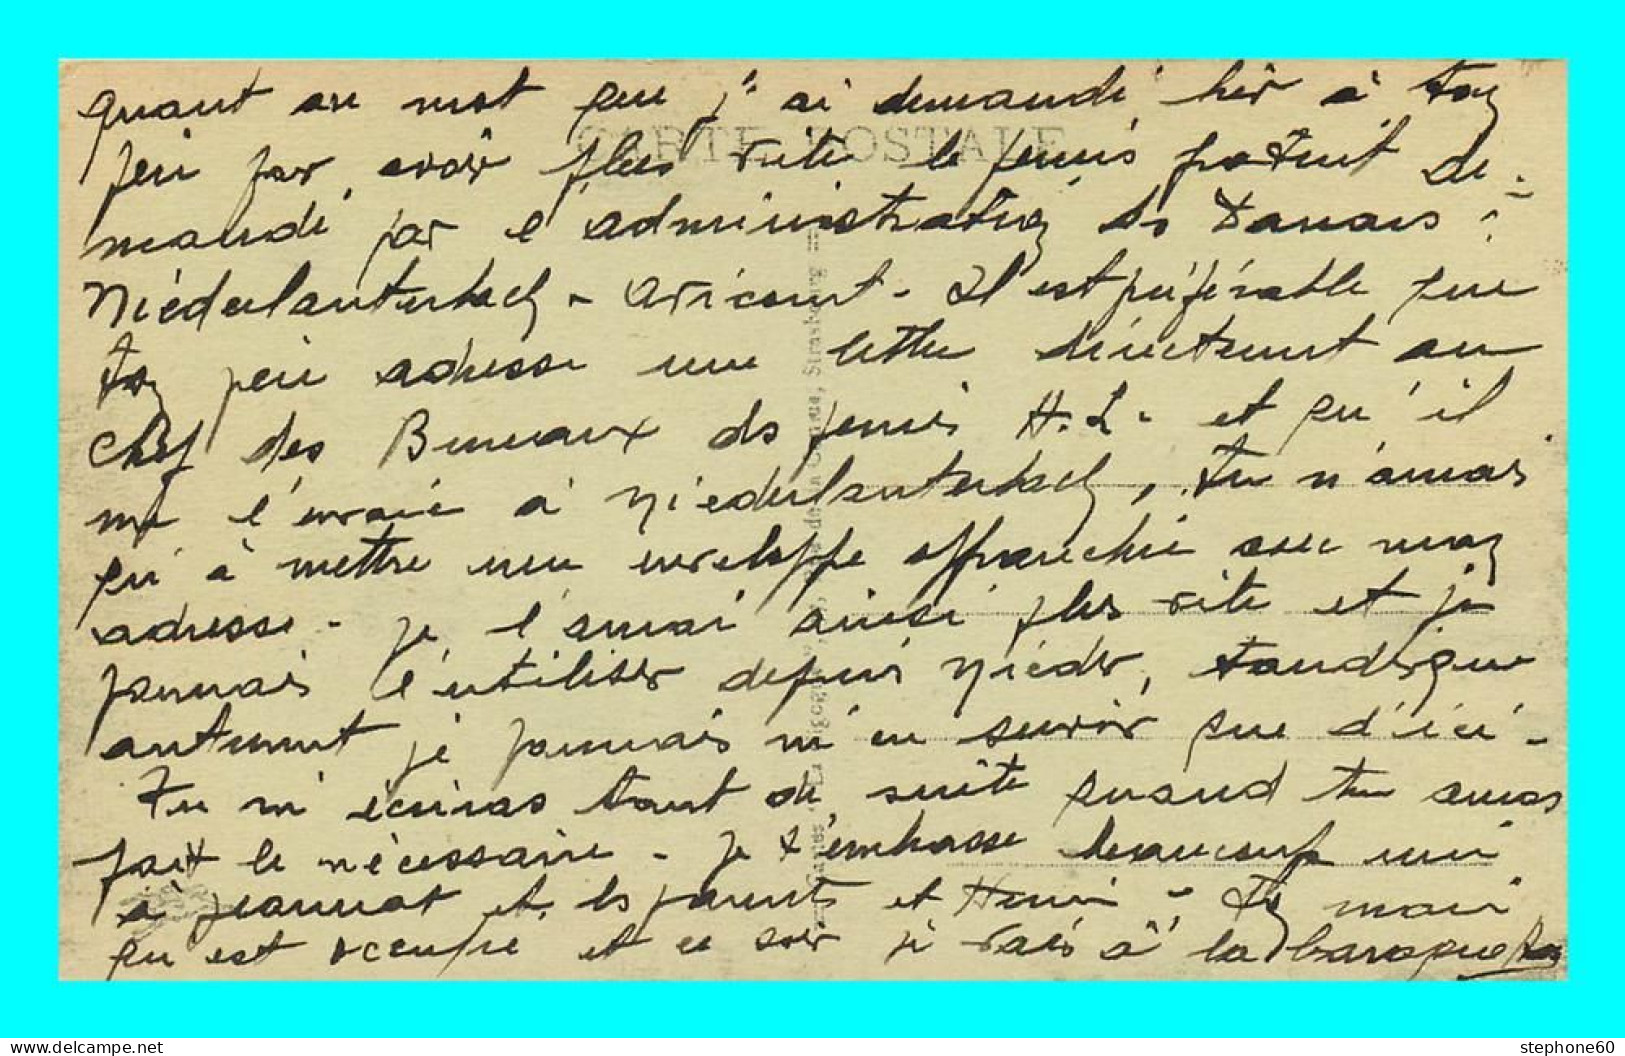 quant au mot que j'ai demandé hier à ton
père par avoir plus vite le permis gratuit de-
mandé par l'administration ds Tanars :
Niederlauterbach - Avricourt - Il est préférable que
ton père adresse une lettre directement au
chef des Bureaux ds permis H.L. et qu'il
me l'envoie à Niederlauterbach, Tu n'auras
qu'à mettre une enveloppe affranchie avec mon
adresse - je l'aurai ainsi plus vite et je
pourrais l'utiliser depuis Nieder, tandisque
autrement je pourrais m'en servir que d'ici -
Tu m'écriras tout de suite quand tu auras
fait le nécessaire - Je t'embrasse beaucoup
à Jeannot et ls parents et Henri - Ton mari
qui est occupé et ce soir je vais à la baraque
CARTE POSTALE
Strasbourg
stephone60
delcampe.net